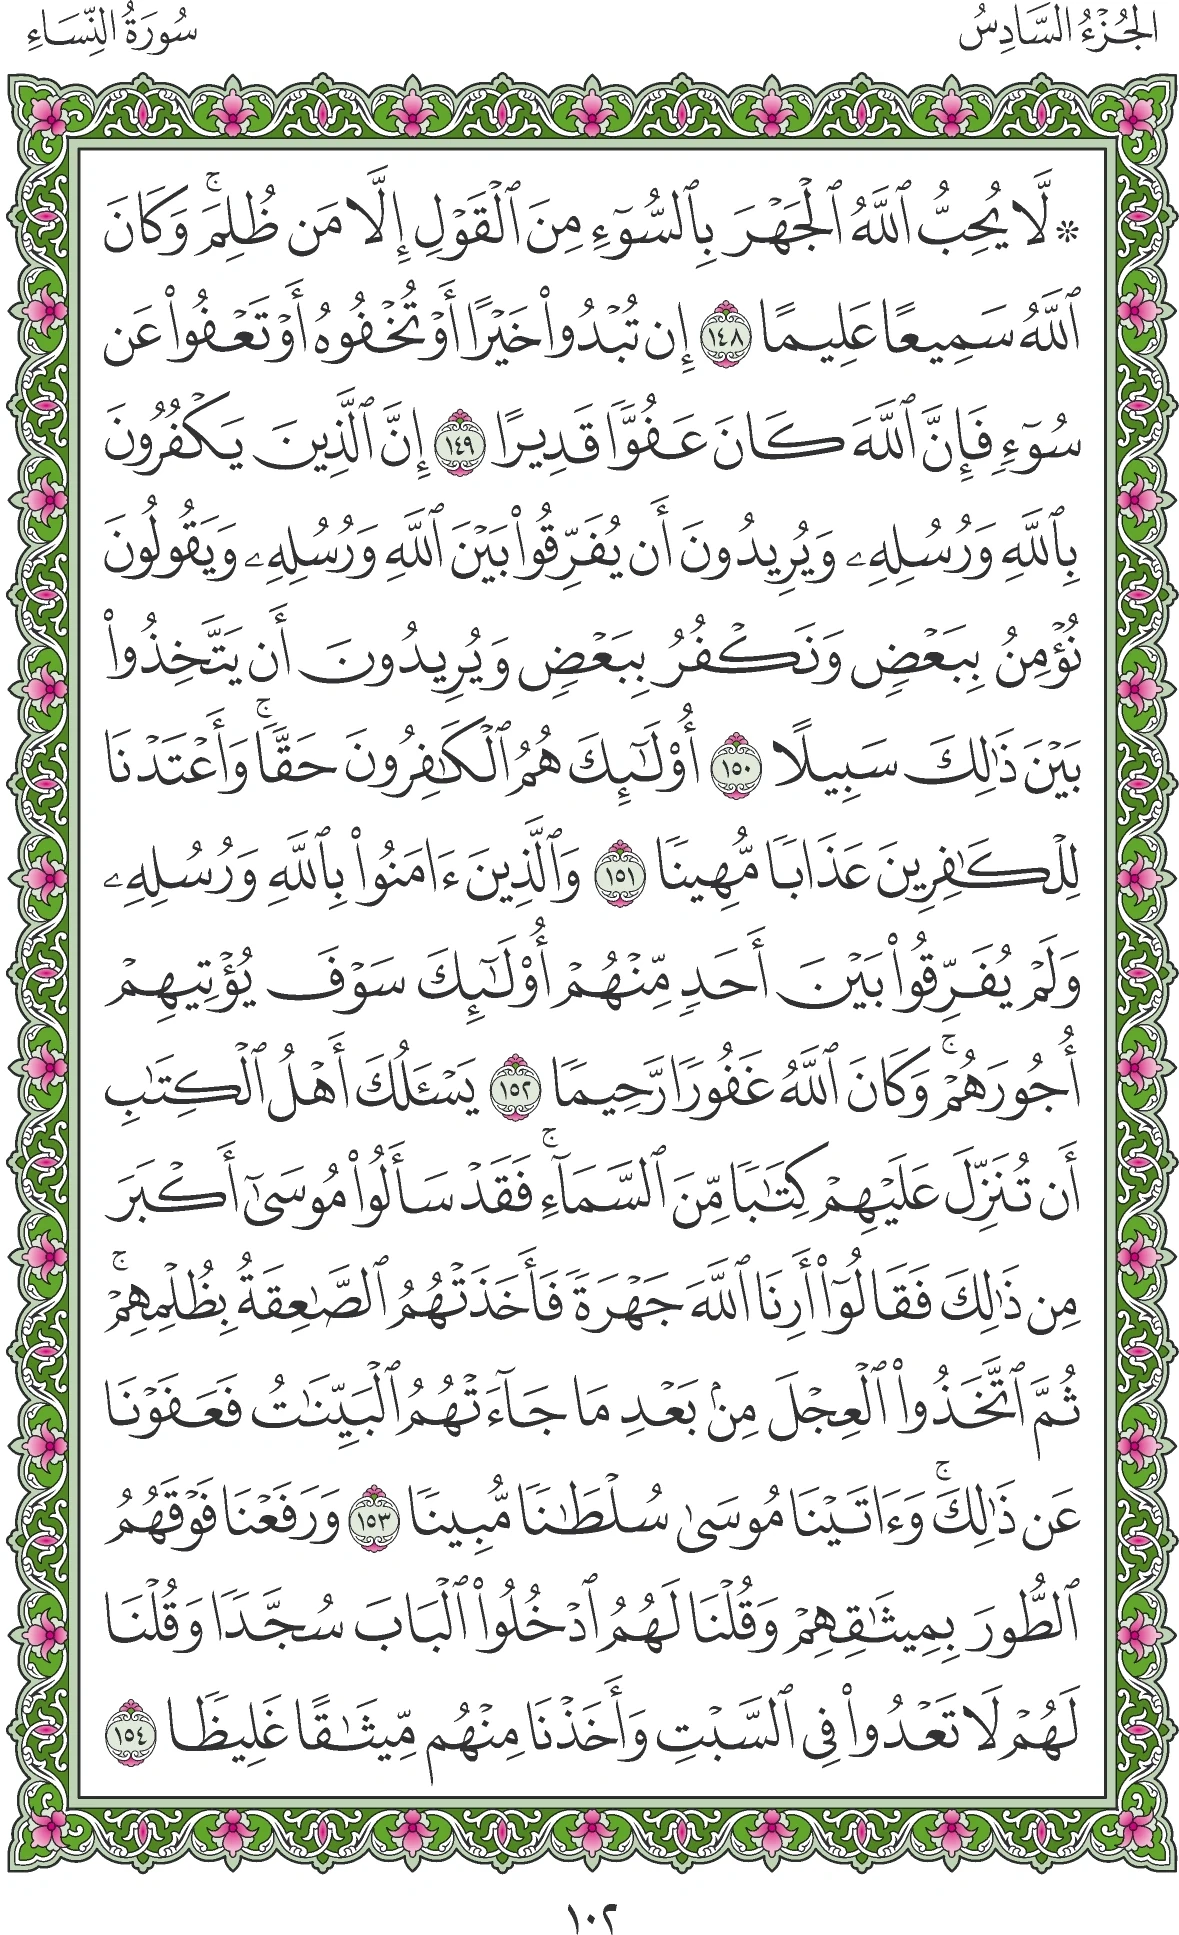 الجُزْءُ السَّادِسُ
سُورَةُ النِّسَاءِ
۞ لَّا يُحِبُّ ٱللَّهُ ٱلْجَهْرَ بِٱلسُّوٓءِ مِنَ ٱلْقَوْلِ إِلَّا مَن ظُلِمَۚ وَكَانَ
ٱللَّهُ سَمِيعًا عَلِيمًا ١٤٨ إِن تُبْدُوا۟ خَيْرًا أَوْ تُخْفُوهُ أَوْ تَعْفُوا۟ عَن
سُوٓءٍ فَإِنَّ ٱللَّهَ كَانَ عَفُوًّا قَدِيرًا ١٤٩ إِنَّ ٱلَّذِينَ يَكْفُرُونَ
بِٱللَّهِ وَرُسُلِهِۦ وَيُرِيدُونَ أَن يُفَرِّقُوا۟ بَيْنَ ٱللَّهِ وَرُسُلِهِۦ وَيَقُولُونَ
نُؤْمِنُ بِبَعْضٍ وَنَكْفُرُ بِبَعْضٍ وَيُرِيدُونَ أَن يَتَّخِذُوا۟
بَيْنَ ذَٰلِكَ سَبِيلًا ١٥٠ أُو۟لَـٰٓئِكَ هُمُ ٱلْكَـٰفِرُونَ حَقًّاۚ وَأَعْتَدْنَا
لِلْكَـٰفِرِينَ عَذَابًا مُّهِينًا ١٥١ وَٱلَّذِينَ ءَامَنُوا۟ بِٱللَّهِ وَرُسُلِهِۦ
وَلَمْ يُفَرِّقُوا۟ بَيْنَ أَحَدٍ مِّنْهُمْ أُو۟لَـٰٓئِكَ سَوْفَ يُؤْتِيهِمْ
أُجُورَهُمْۚ وَكَانَ ٱللَّهُ غَفُورًا رَّحِيمًا ١٥٢ يَسْـَٔلُكَ أَهْلُ ٱلْكِتَـٰبِ
أَن تُنَزِّلَ عَلَيْهِمْ كِتَـٰبًا مِّنَ ٱلسَّمَآءِۚ فَقَدْ سَأَلُوا۟ مُوسَىٰٓ أَكْبَرَ
مِن ذَٰلِكَ فَقَالُوٓا۟ أَرِنَا ٱللَّهَ جَهْرَةً فَأَخَذَتْهُمُ ٱلصَّـٰعِقَةُ بِظُلْمِهِمْۚ
ثُمَّ ٱتَّخَذُوا۟ ٱلْعِجْلَ مِنۢ بَعْدِ مَا جَآءَتْهُمُ ٱلْبَيِّنَـٰتُ فَعَفَوْنَا
عَن ذَٰلِكَۚ وَءَاتَيْنَا مُوسَىٰ سُلْطَـٰنًا مُّبِينًا ١٥٣ وَرَفَعْنَا فَوْقَهُمُ
ٱلطُّورَ بِمِيثَـٰقِهِمْ وَقُلْنَا لَهُمُ ٱدْخُلُوا۟ ٱلْبَابَ سُجَّدًا وَقُلْنَا
لَهُمْ لَا تَعْدُوا۟ فِى ٱلسَّبْتِ وَأَخَذْنَا مِنْهُم مِّيثَـٰقًا غَلِيظًا ١٥٤
١٠٢